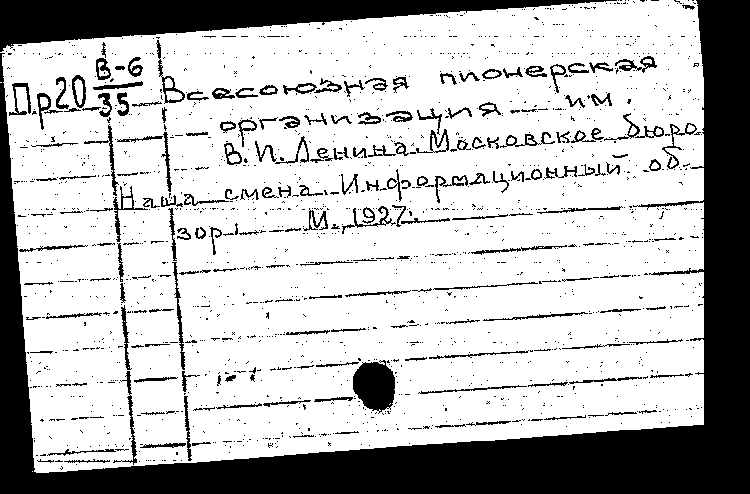 Пр20 В-6/35 Всесоюзная пионерская
организация им.
В.И.Ленина. Московское бюро.
Наша смена. Информационный об-
зор. М., 1927.